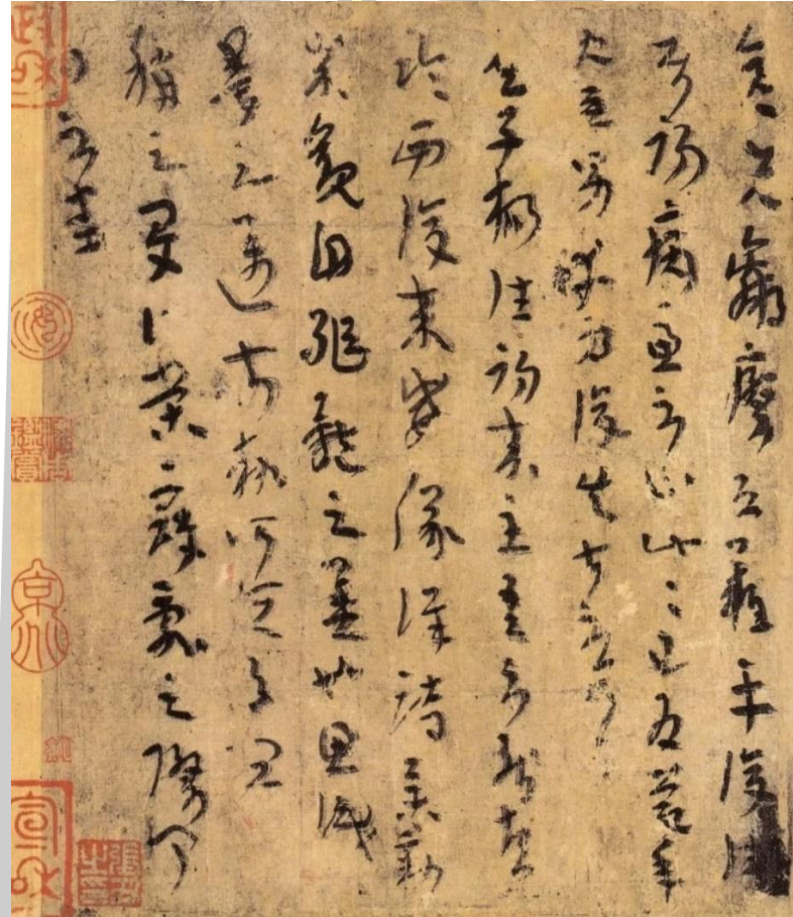 彦先羸瘵恐難平復往屬
初病慮不止此此已為慶承
使唯男幸為復失前憂耳
子楊往初來主吾不能盡
臨西復來威儀詳跱舉動
成觀自軀體之美也思識
量之邁前執所恒有宜
稱之夏伯榮寇亂之際聞
問不悉
政和
宣和